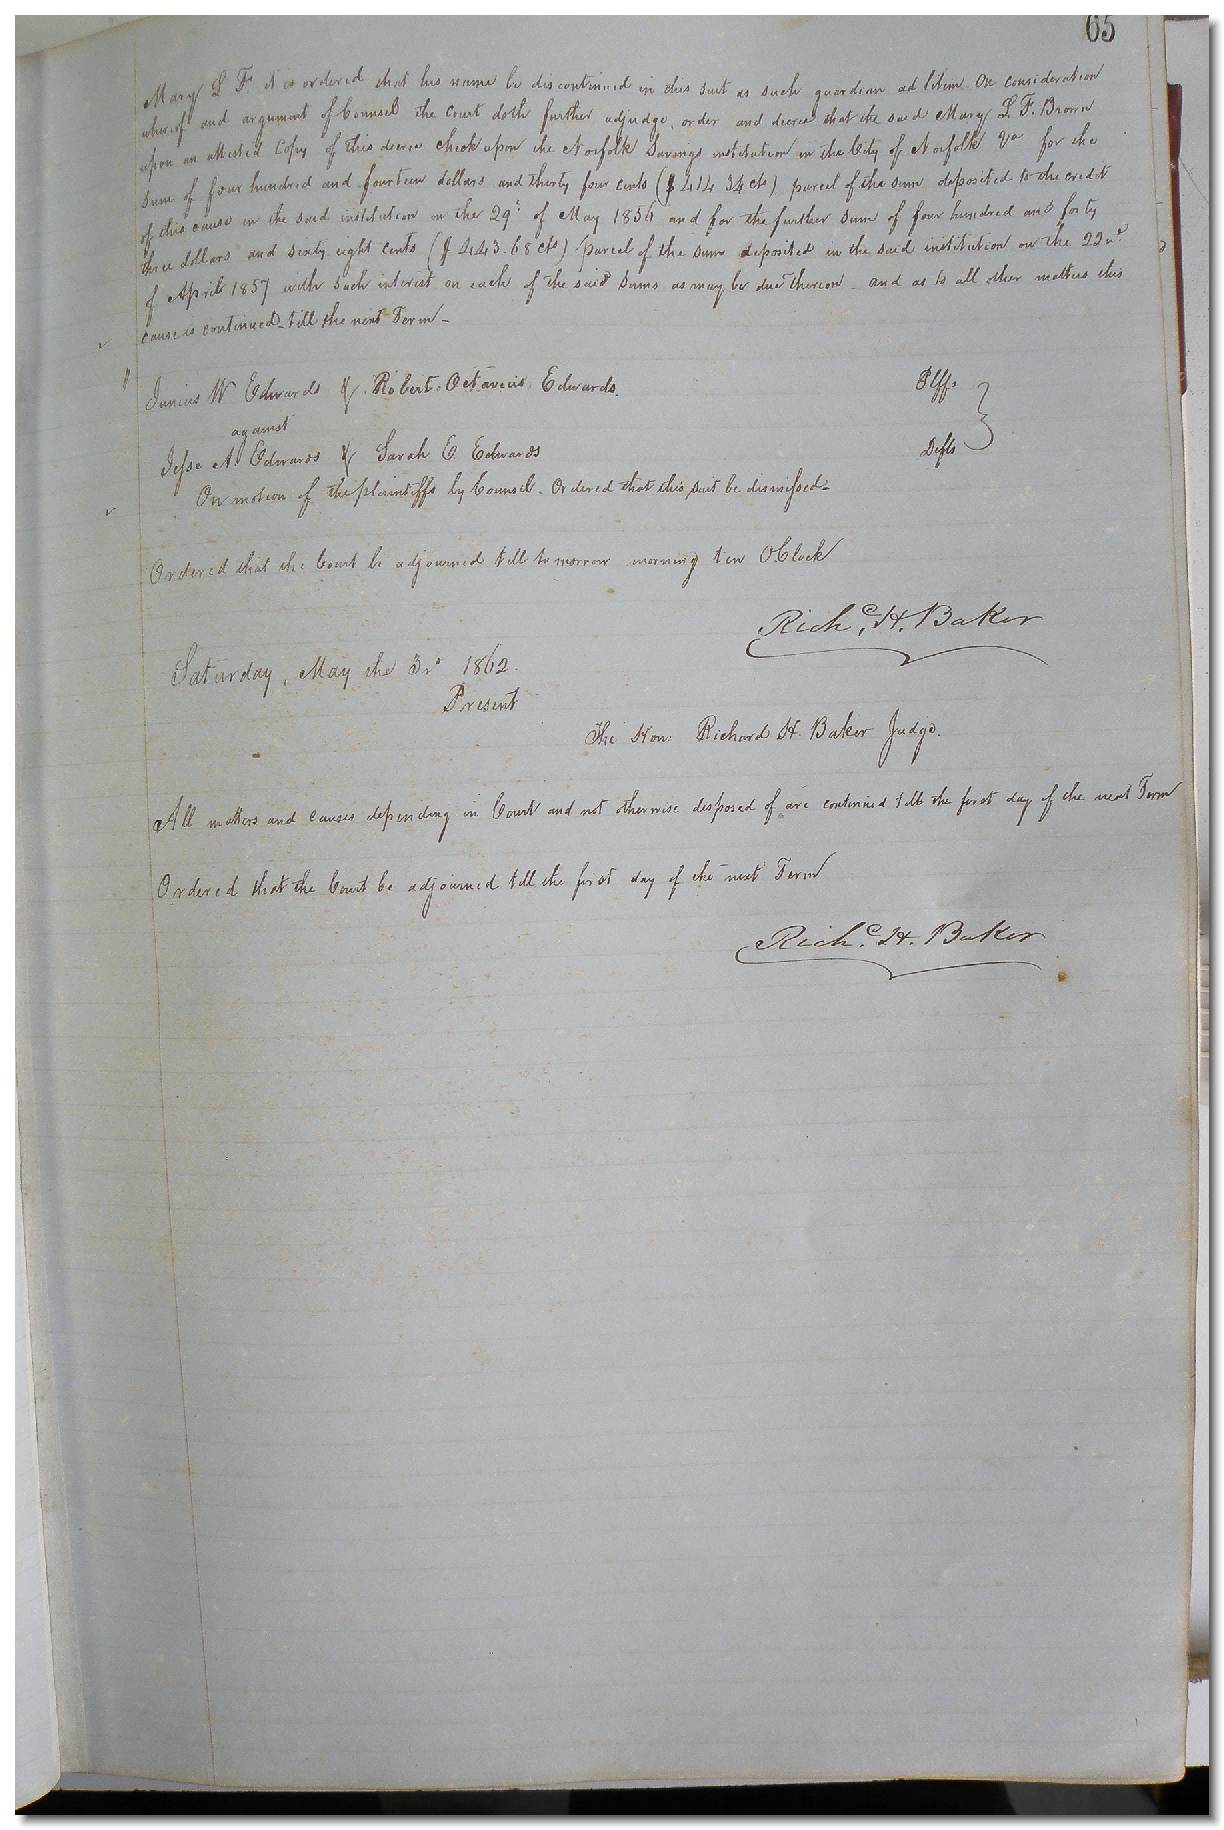 65
Mary L F. it is ordered that his name be discontinued in this suit as such guardian ad litem. On consideration
whereof and argument of Counsel the Court doth further adjudge, order and decree that the said Mary L. F. Brown
upon an attested Copy of this decree check upon the Norfolk Savings institution in the City of Norfolk Va for the
Sum of four hundred and fourteen dollars and thirty four cents ($414 34 cts) parcel of the sum deposited to the credit
of this cause in the said institution on the 29th of May 1856 and for the further sum of four hundred and forty
three dollars and sixty eight cents ($443.68 cts) parcel of the sum deposited in the said institution on the 22nd
of April 1857 with such interest on each of the said sums as may be due thereon - and as to all other matters this
cause is continued - till the next Term -
Junius W Edwards & Robert Octavius Edwards. Plffs
against
Jesse A Edwards & Sarah E Edwards Defts
On motion of the plaintiffs by Counsel - Ordered that this suit be dismissed -
Ordered that the Court be adjourned till tomorrow morning ten OClock
Richd. H. Baker
Saturday, May the 3rd 1862.
Present
The Hon: Richard H. Baker Judge.
All matters and causes depending in Court and not otherwise disposed of are continued till the first day of the next Term
Ordered that the Court be adjourned till the first day of the next Term
Richd. H. Baker